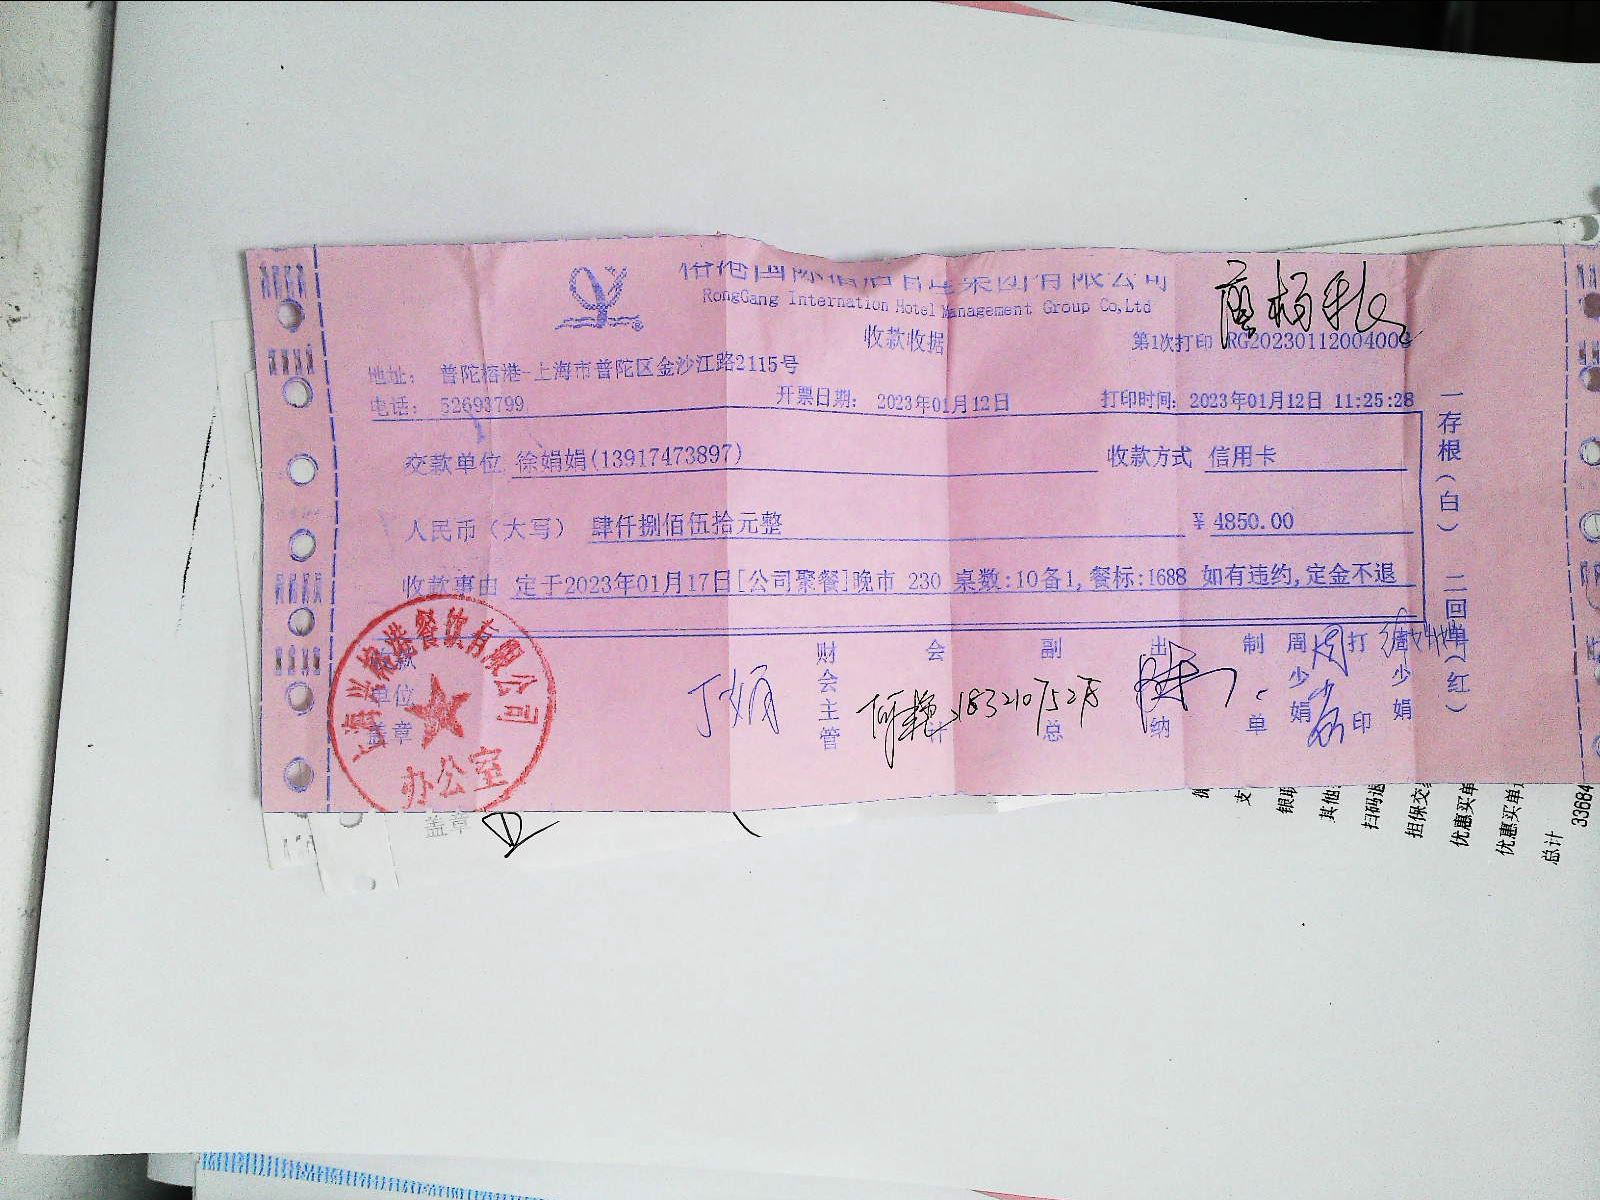 榕港国际酒店管理集团有限公司
RongGang Internation Hotel Management Group Co,Ltd
收款收据
第1次打印 RG20230112004006
地址： 普陀榕港-上海市普陀区金沙江路2115号
电话： 52693799
开票日期： 2023年01月12日
打印时间： 2023年01月12日 11:25:28
交款单位 徐娟娟(13917473897)
收款方式 信用卡
人民币（大写） 肆仟捌佰伍拾元整
￥4850.00
收款事由 定于2023年01月17日[公司聚餐]晚市 230 桌数:10备1,餐标:1688 如有违约,定金不退
收款单位盖章
财会主管
会计
副总
出纳
制单 周少娟
打印 周少娟
一存根（白） 二回单（红）
餐饮有限公司
办公室
丁娟
盖章
支
银联
其他
扫码
担保交
优惠买单
优惠买单
总计
33684